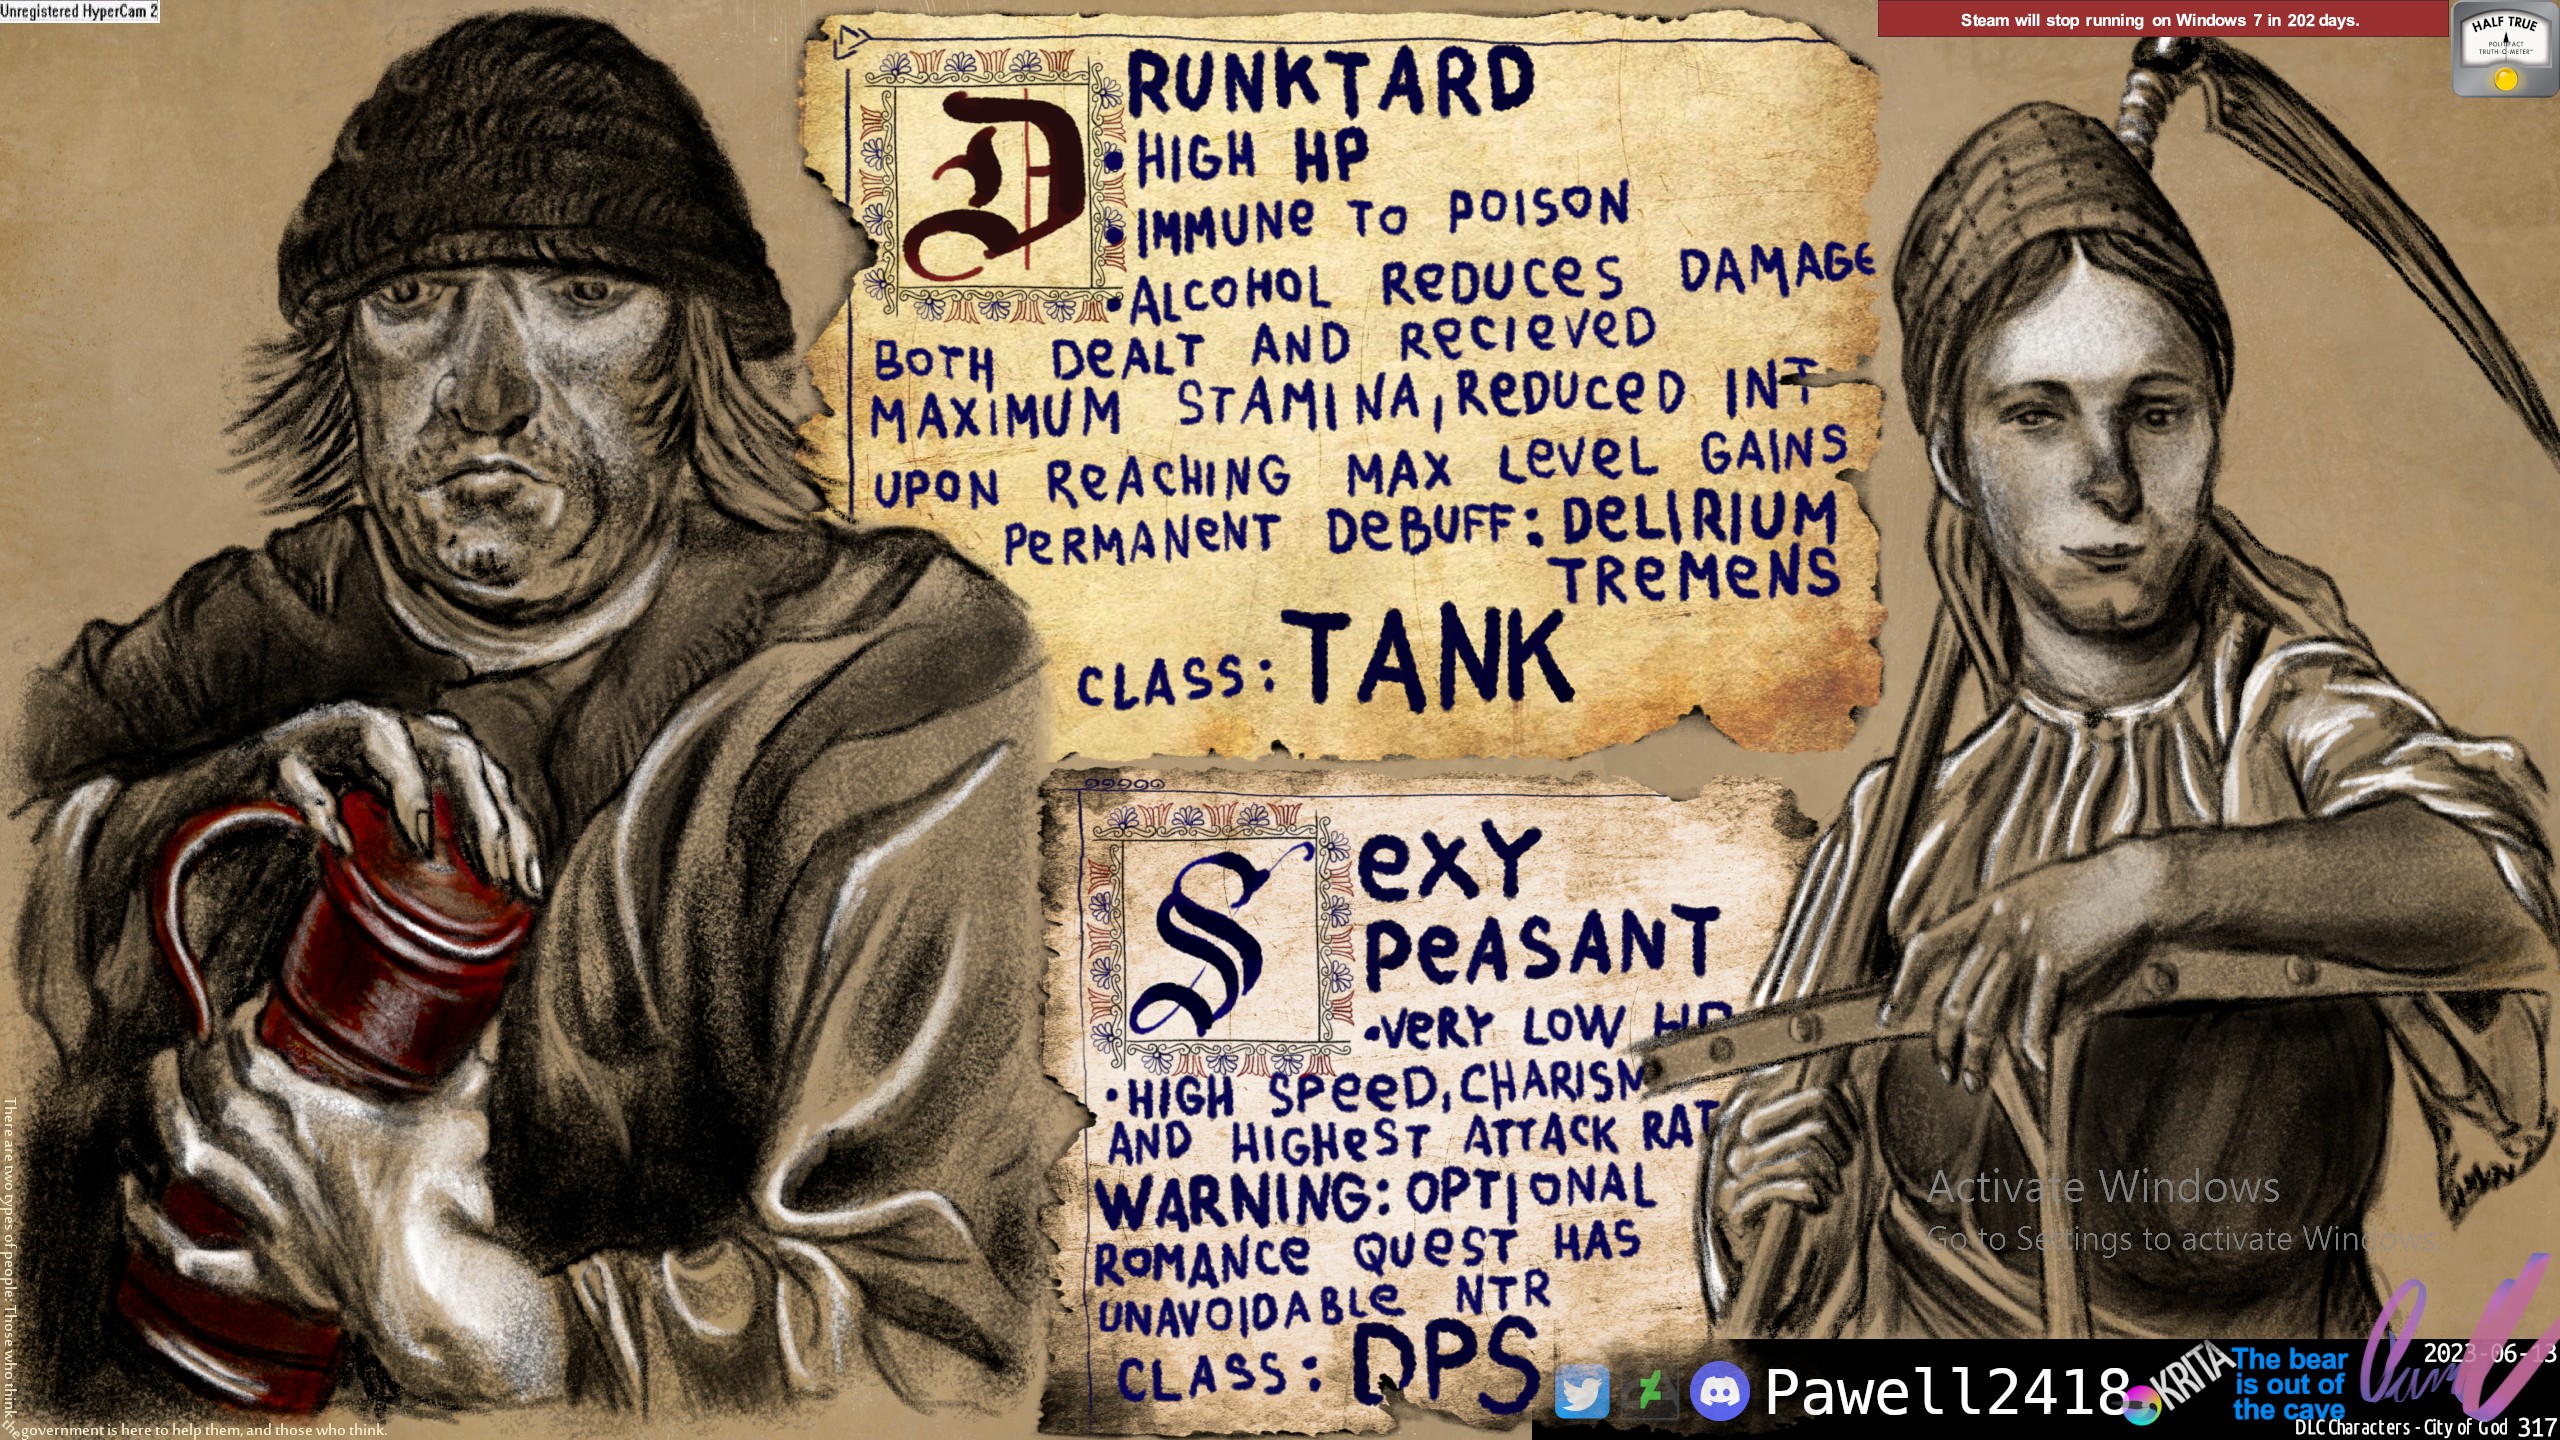 Unregistered HyperCam 2
Steam will stop running on Windows 7 in 202 days.
HALF TRUE
POLITIFACT
TRUTH-O-METER™
DRUNKTARD
•HIGH HP
•IMMUNE TO POISON
•ALCOHOL REDUCES DAMAGE
BOTH DEALT AND RECIEVED
MAXIMUM STAMINA, REDUCED INT
UPON REACHING MAX LEVEL GAINS
PERMANENT DEBUFF: DELIRIUM
TREMENS
CLASS: TANK
SEXY
PEASANT
•VERY LOW HP
•HIGH SPEED, CHARISM
AND HIGHEST ATTACK RAT
WARNING: OPTIONAL
ROMANCE QUEST HAS
UNAVOIDABLE NTR
CLASS: DPS
Activate Windows
Go to Settings to activate Windows.
There are two types of people: Those who think the
government is here to help them, and those who think.
Pawell2418
KRITA
The bear
is out of
the cave
2023-06-13
DLC Characters - City of God 317